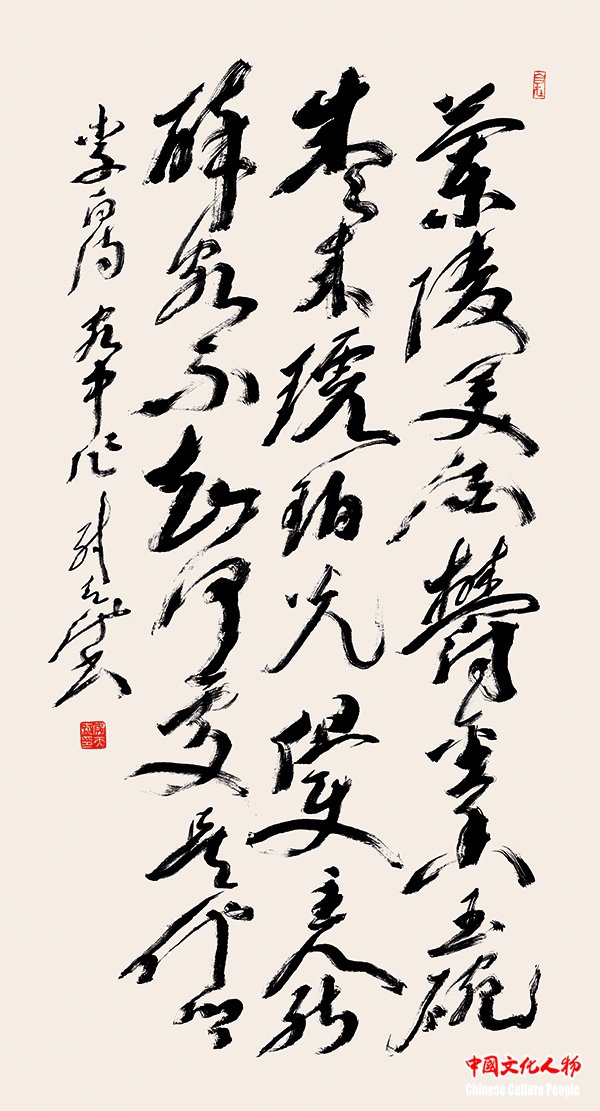 蘭陵美酒鬱金香玉碗
盛来琥珀光但使主人能
醉客不知何處是他鄉
李白詩客中作
中國文化人物
Chinese Culture People